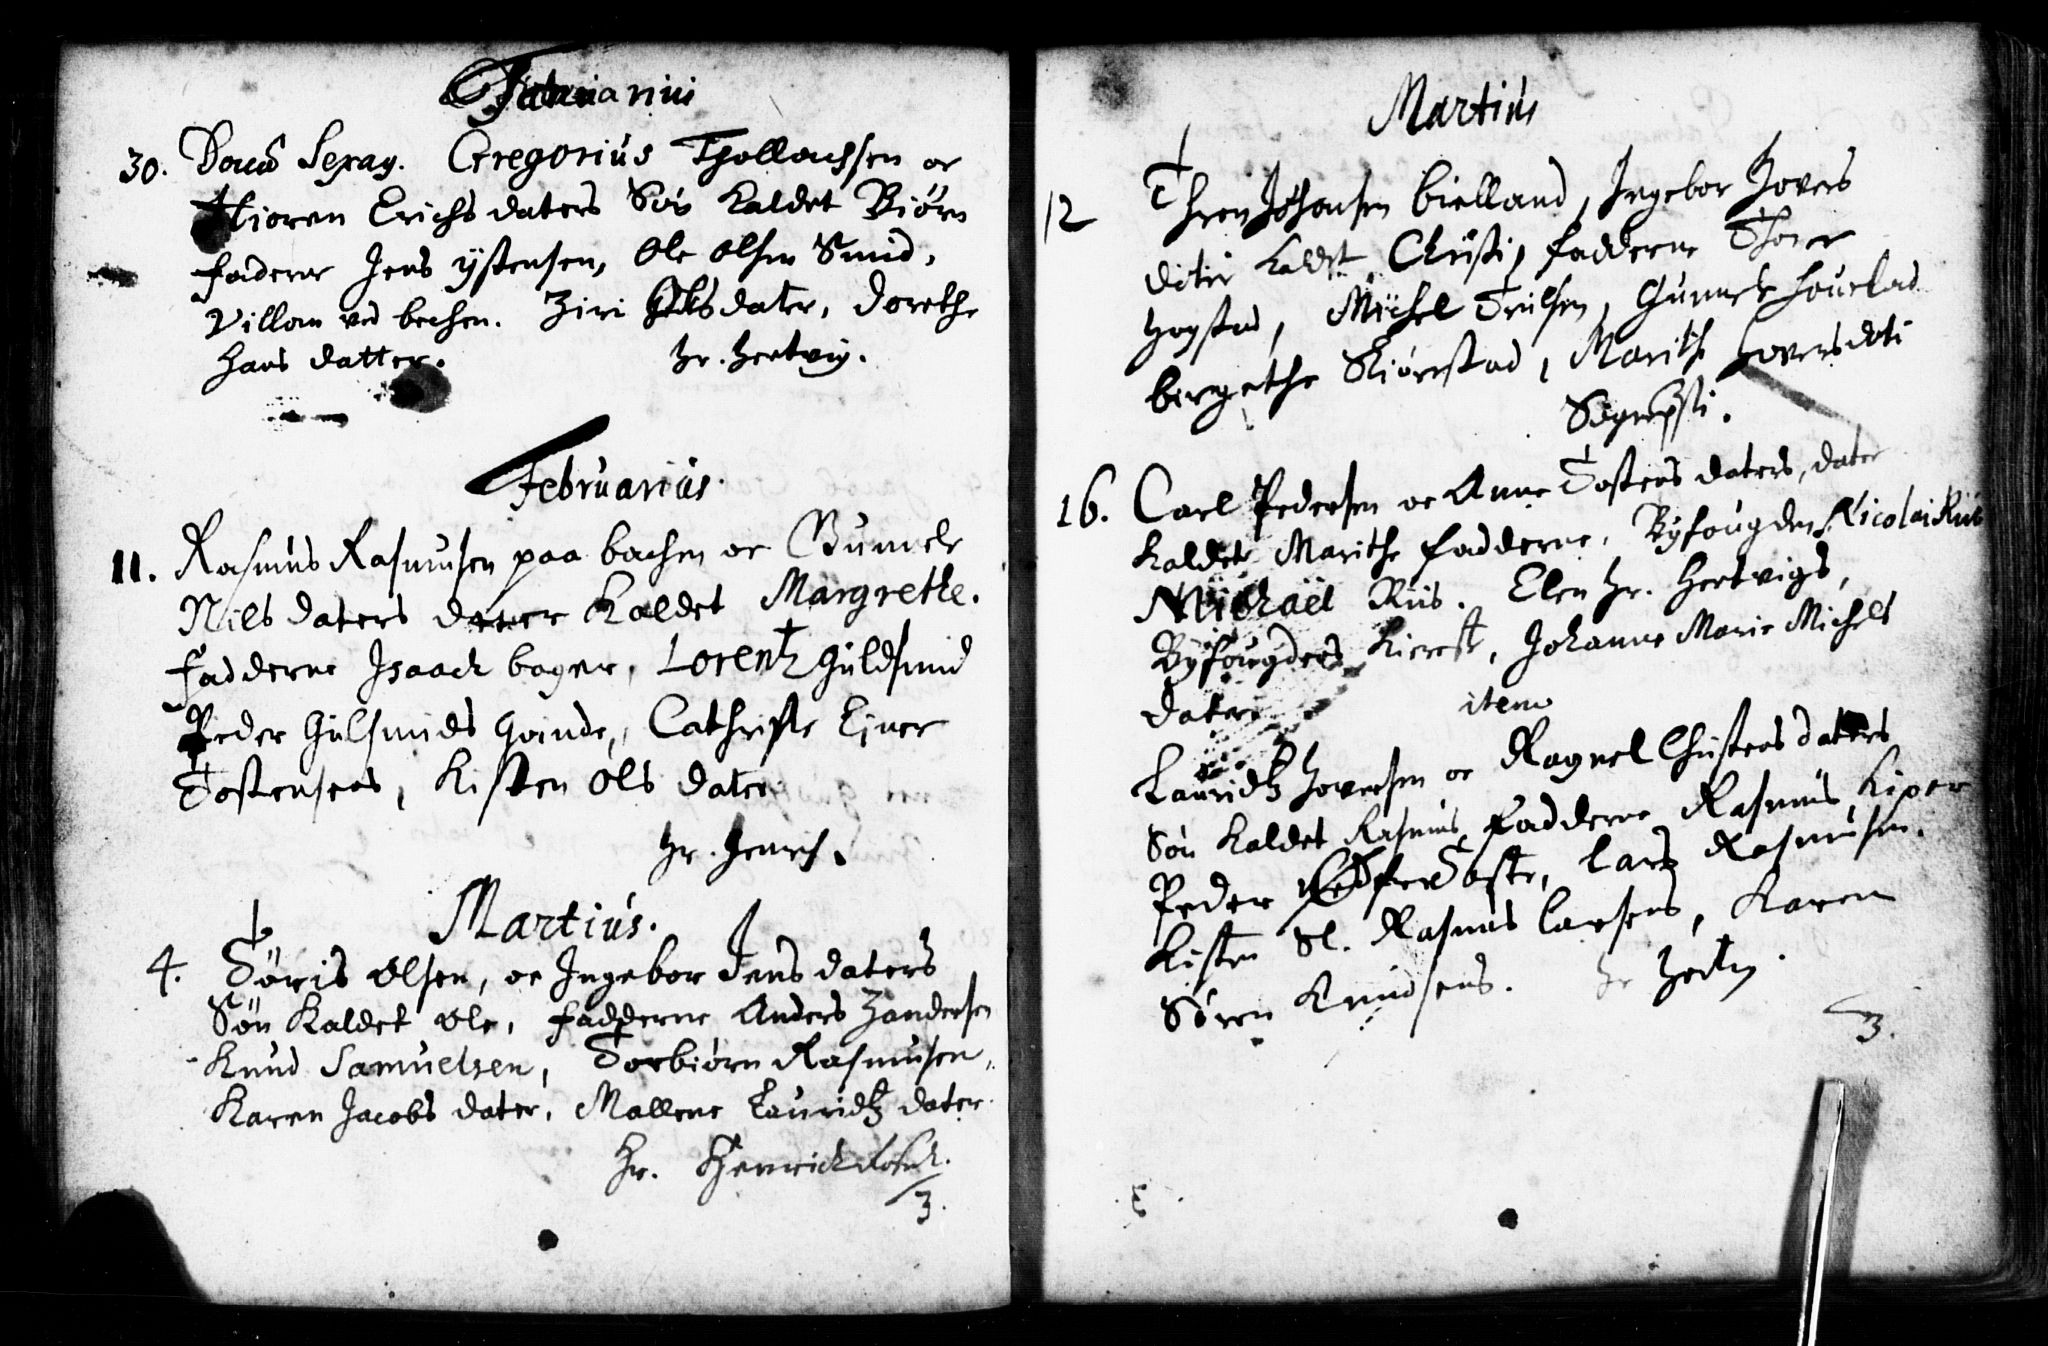 Februarius
30. Domi Sexag. Gregorius Tjollachsen oc
Kioren Erichs daters Søn kaldet Biørn
faderne Jens ÿstensen, Ole Olsen Smid,
Villom ved bechen. Ziri Olsdater, Dorethe
Hans datter. Hr. Hertvig.
Februariüs.
11. Rasmus Rasmusen paa bachen oc Gunnele
Nils daters dater kaldet Margrethe.
fadderne Isaach bager, Lorentz Guldsmid
Peder Gulsmids Qvinde, Cathrisse Einer
Tostensens, Kisten Ols dater
Hr. Henrich.
Martiüs.
4. Tøris Olsen, oc Ingebor Jens daters
Søn kaldet Ole, fadderne Anders Zandersen
Knud Samuelsen, Torbiørn Rasmusen,
Karen Jacobs dater, Mallene Lauridtz dater.
Hr. Henrich
3.
Martiüs
12 Johansen bielland, Ingebor Jovers
kaldet Christi, fadderne Thorer
Hogstad, Michel Trulsen, Gunnele
bergethe Kiørrstad, Marithe Joversdoti
16. Carl Pedersen oc Anne Tostens daters, dater
kaldet Marithe fadderne, Byfougden Nicolai Riis
Michaël Riis. Elen Hr. Hertvigs,
Byfougdens Kierest, Johanne Marie Michels
dater.
item
Lauridtz Joversen oc Ragnel Christens daters
Søn kaldet Rasmus, fadderne Rasmus Kiper
Peder Toste, Lars Rasmusen.
Kisten Sl. Rasmus Larsens, Karen
Søren Knudsens. Hr Hertvig.
3.